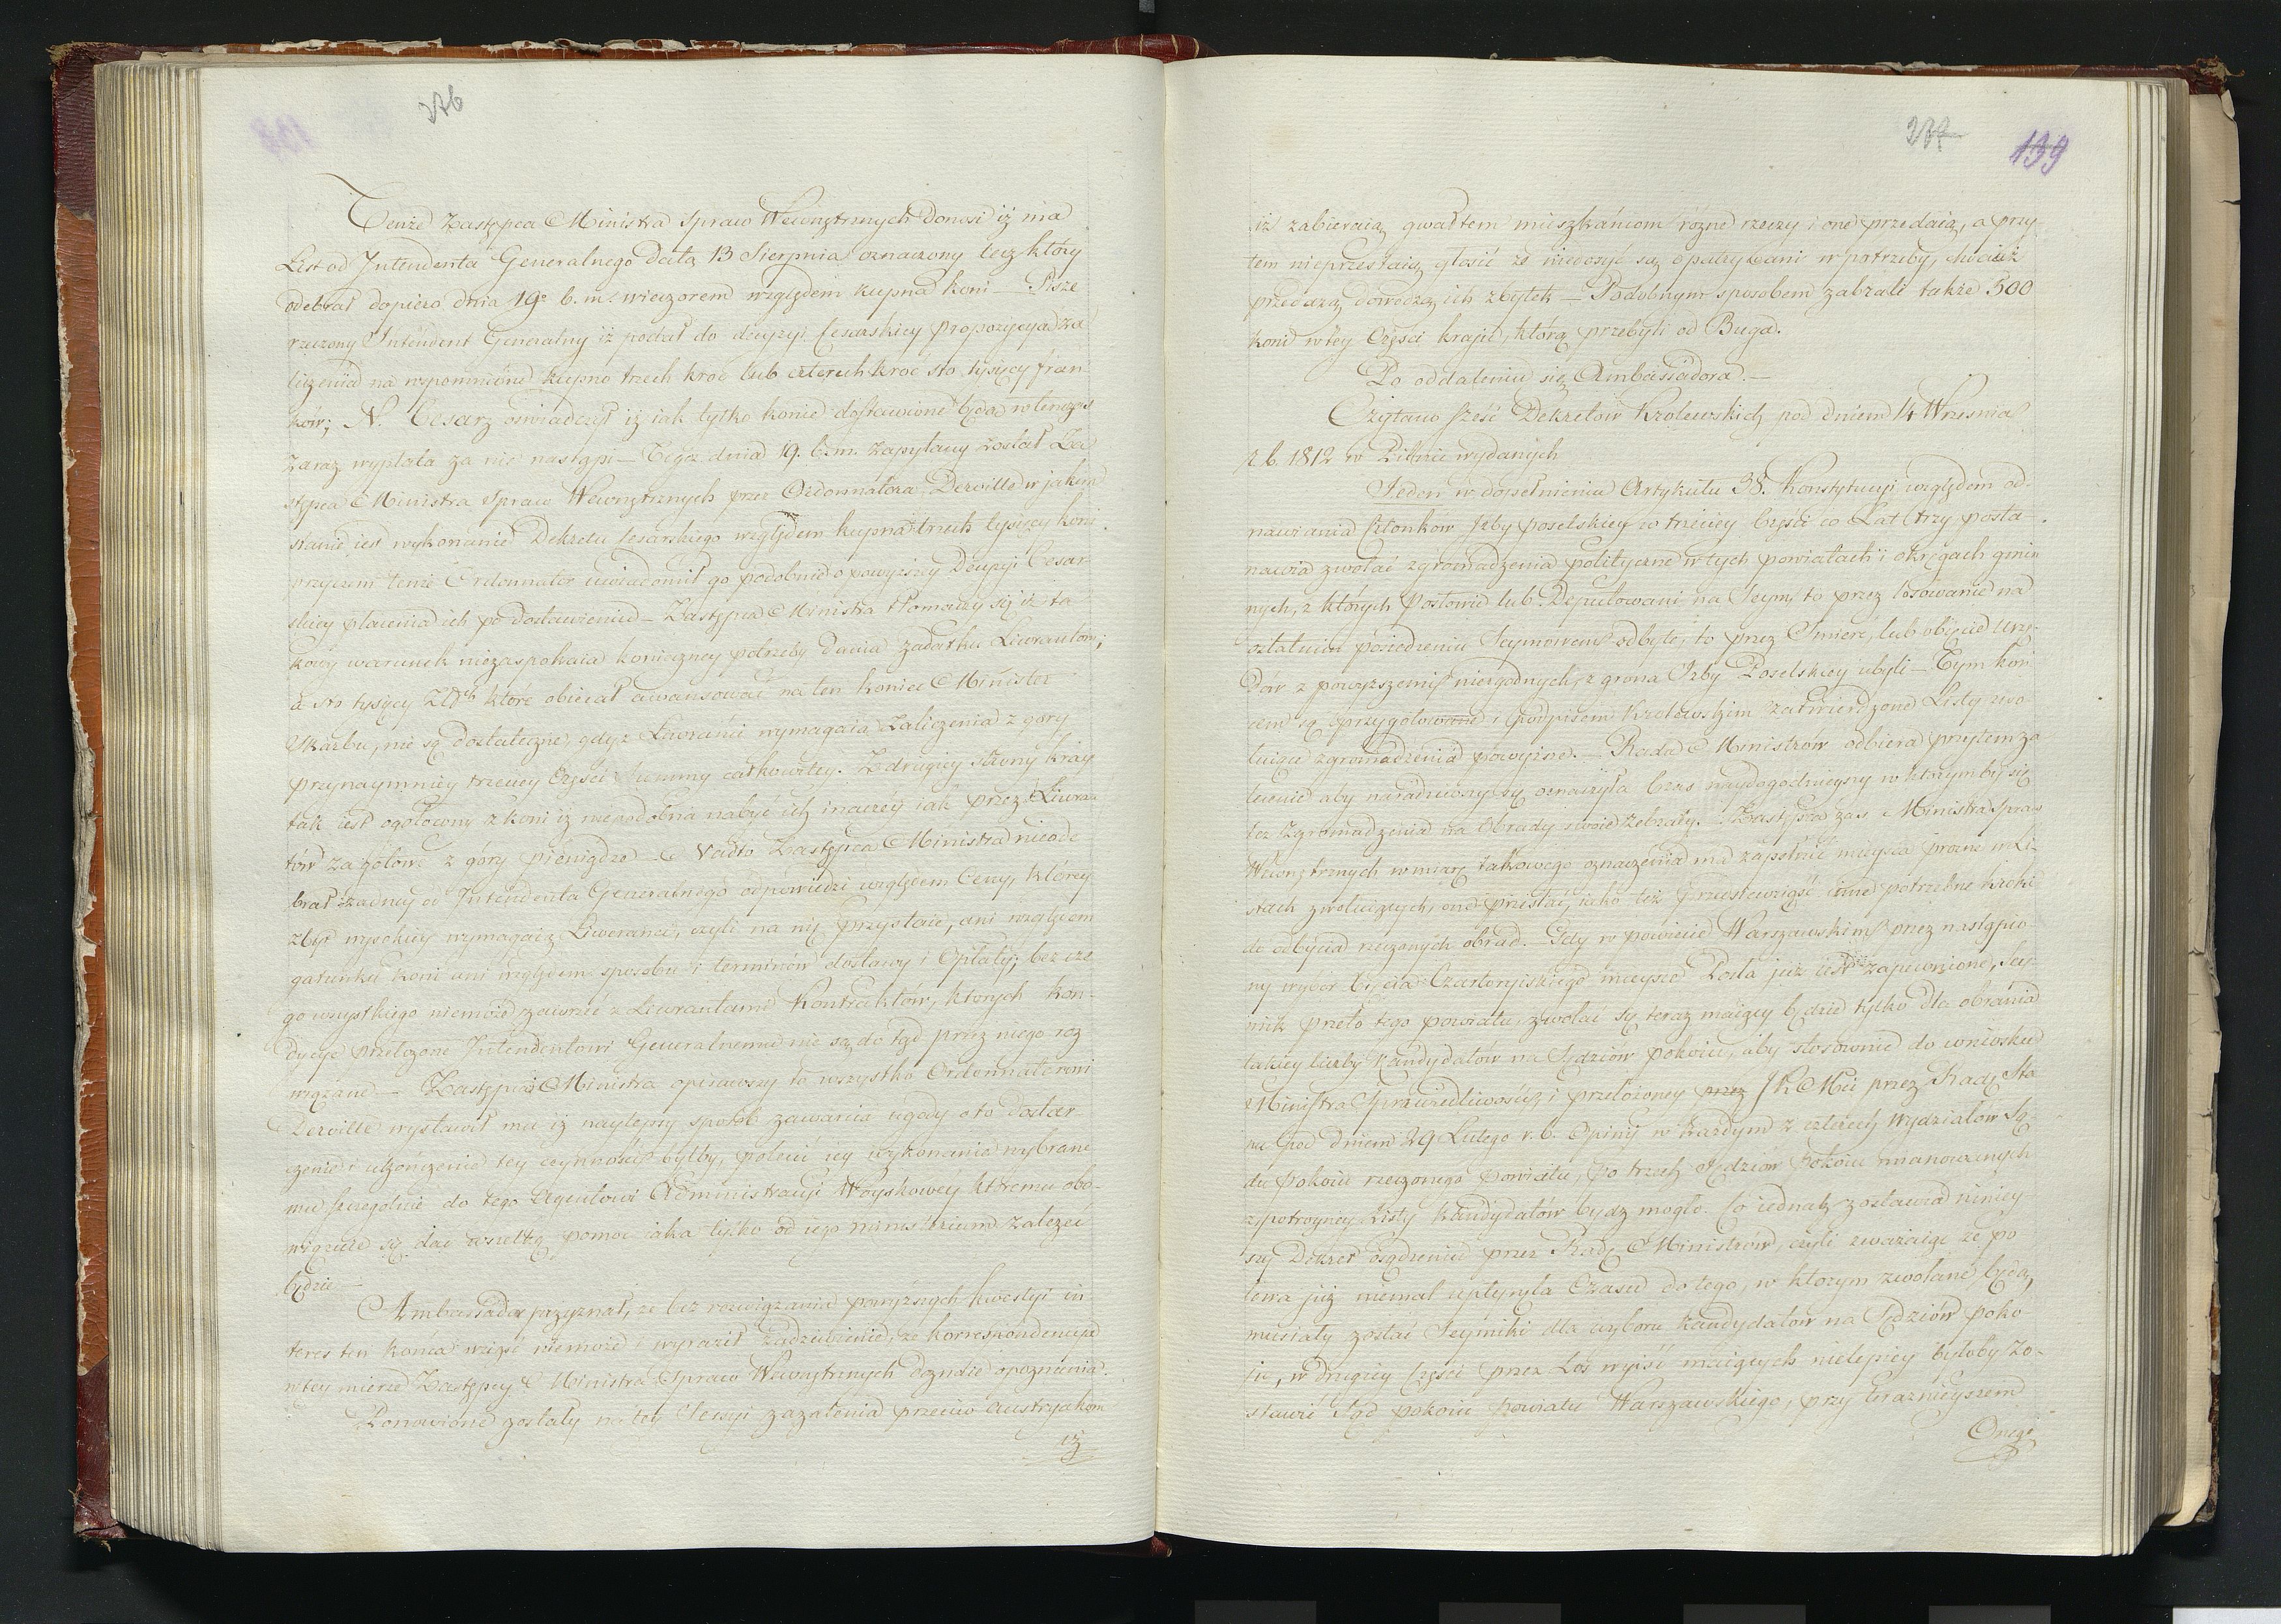 276
Tenże Zastępca Ministra Spraw Wewnętrznych donosi iż ma
List od Intendenta Generalnego datą 13 Sierpnia oznaczony lecz który
odebrał dopiéro dnia 19º b. m. wieczorem względem kupna koni — Pisze
rzeczony Intendent Generalny iż podał do decyzyi Cesarskiey propozycyą za
liczenia na wspomnione kupno trzech kroć lub czterech kroć sto tysięcy fran-
ków; N. Cesarz oświadczył iż iak tylko konie dostawione będą wtenczas
zaraz wypłata za nie nastąpi — Tegoż dnia 19. b. m. zapytany został Za
stępca Ministra Spraw Wewnętrznych przez Ordonnatora Derville w jakim
stanie iest wykonanie Dekretu Cesarskiego względem kupna trzech tysięcy koni
przyczem tenże Ordonnator uwiadomił go podobnie o powyższey Decyzyi Cesar-
skiey płacenia ich po dostawieniu — Zastępca Ministra tłomaczy się iż ta
kowy warunek niezaspokaia konieczney potrzeby dania zadatku Liwerantom;
a sto tysięcy Złłch które obiecał awansować na ten koniec Minister
Skarbu, nie są dostateczne, gdyż Liweranci wymagaią zaliczenia z góry
przynaymniey trzeciey Części Summy całkowitey. Z drugiey strony kray
tak iest ogołocony z koni iż niepodobna nabyć ich inaczéy iak przez Liwera
tów za gotowe z góry pieniądze — Nadto Zastępca Ministra nieode
brał żadney od Intendenta Generalnego odpowiedzi względem Ceny, którey
zbyt wysokiey wymagaią Liweranci, czyli na nię przystaie, ani względem
gatunku koni ani względem sposobu i terminów dostawy i Opłaty; bez cze
go wszystkiego niemoże zawrzéć z Liwerantami Kontraktów, których kon-
dycye przełożone Intendentowi Generalnemu nie są do tąd przez niego roz
wiązane — Zastępca Ministra opisawszy to wszystko Ordonnatorowi
Derville wystawił mu iż naylepszy sposób zawarcia ugody o to dostar-
czenie i ukończenie tey czynności byłby, polecić iey wykonanie wybrane
mu szczególnie do tego Agentowi Administracyi Woyskowey któremu obo-
wiązuie się dać wszelką pomoc iaka tylko od iego ministerium zależeć
będzie —
Ambassador przyznał, że bez rozwiązania powyższych kwestyi in-
teres ten końca wziąść niemoże i wyraził zadziwienie, że korrespondencya
w tey mierze Zastępcy Ministra Spraw Wewnętrznych doznaie opoznienia.
Ponowione zostały na tey Sessyi zażalenia przeciw Austryakom
iż
277
139
iż zabieraią gwałtem mieszkańcom różne rzeczy i one przedaią, a przy
tem nieprzestaią głosić że niedosyć są opatrywani w potrzeby, chociaż
przedażą dowodzą ich zbytek — Podobnym sposobem zabrali także 500
koni w tey Części kraju, którą przebyli od Buga.
Po oddaleniu się Ambassadora. —
Czytano sześć Dekretów Krolewskich pod dniem 14 Wrzesnia
r. b. 1812 w Pilnie wydanych
Jeden w dopełnieniu Artykułu 38. Konstytucyi względem od-
nawiania Członków Izby poselskiey w trzeciey Części co Lat trzy posta-
nawia zwołać zgromadzenia polityczne w tych powiatach i okręgach gmin
nych, z których Posłowie lub Deputowani na Seym, to przez losowanie na
ostatniem posiedzeniu Seymowem odbyte, to przez Śmierć, lub obięcie Urzę-
dów z powyższemi niezgodnych, z grona Izby Poselskiey ubyli — Tym koń
cem są przygotowane i podpisem Krolewskim zatwierdzone Listy zwo
łuiące zgromadzenia powyższe. — Rada Ministrów odbiera przytem za
lecenie aby naradziwszy się oznaczyła Czas naydogodnieyszy w którymby się
też Zgromadzenia na Obrady swoie zebrały. Zastępca zas Ministra Spraw
Wewnętrznych w miarę takowego oznaczenia ma zapełnić mieysca prozne w Li-
stach zwołuiących, one przesłać, iako też przedsięwziąść inne potrzebne kroki
do odbycia rzeczonych obrad. Gdy w powiecie Warszawskim przez nastąpio-
ny wybór Xięcia Czartoryiskiego mieysce Posła już iest zapewnione, Sey-
mik przeto tego powiatu, zwołać się teraz maiący będzie tylko dla obrania
takiey liczby kandydatów na Sędziów pokoiu, aby stosownie do wniosku
Ministra Sprawiedliwości, i przełożoney przez JKMci przez Radę Sta
nu pod dniem 29 Lutego r. b. Opinij w każdym z czterech Wydziałów Są-
du Pokoiu rzeczonego powiatu, po trzech Sędziów Pokoiu mianowanych
z potroyney Listy Kandydatów bydz mogło. Co iednak zostawia niniey-
szy Dekret osądzeniu przez Radę Ministrów, czyli zważaiąc że po
łowa już niemal upłynęła Czasu do tego, w którym zwołane będą
musiały zostać Seymiki dla wyboru kandydatów na Sędziów poko
iu, w drugiey Części przez Los wyiść maiących nielepiey byłoby zo-
stawić Sąd pokoiu powiatu Warszawskiego, przy teraznieyszem
Onego